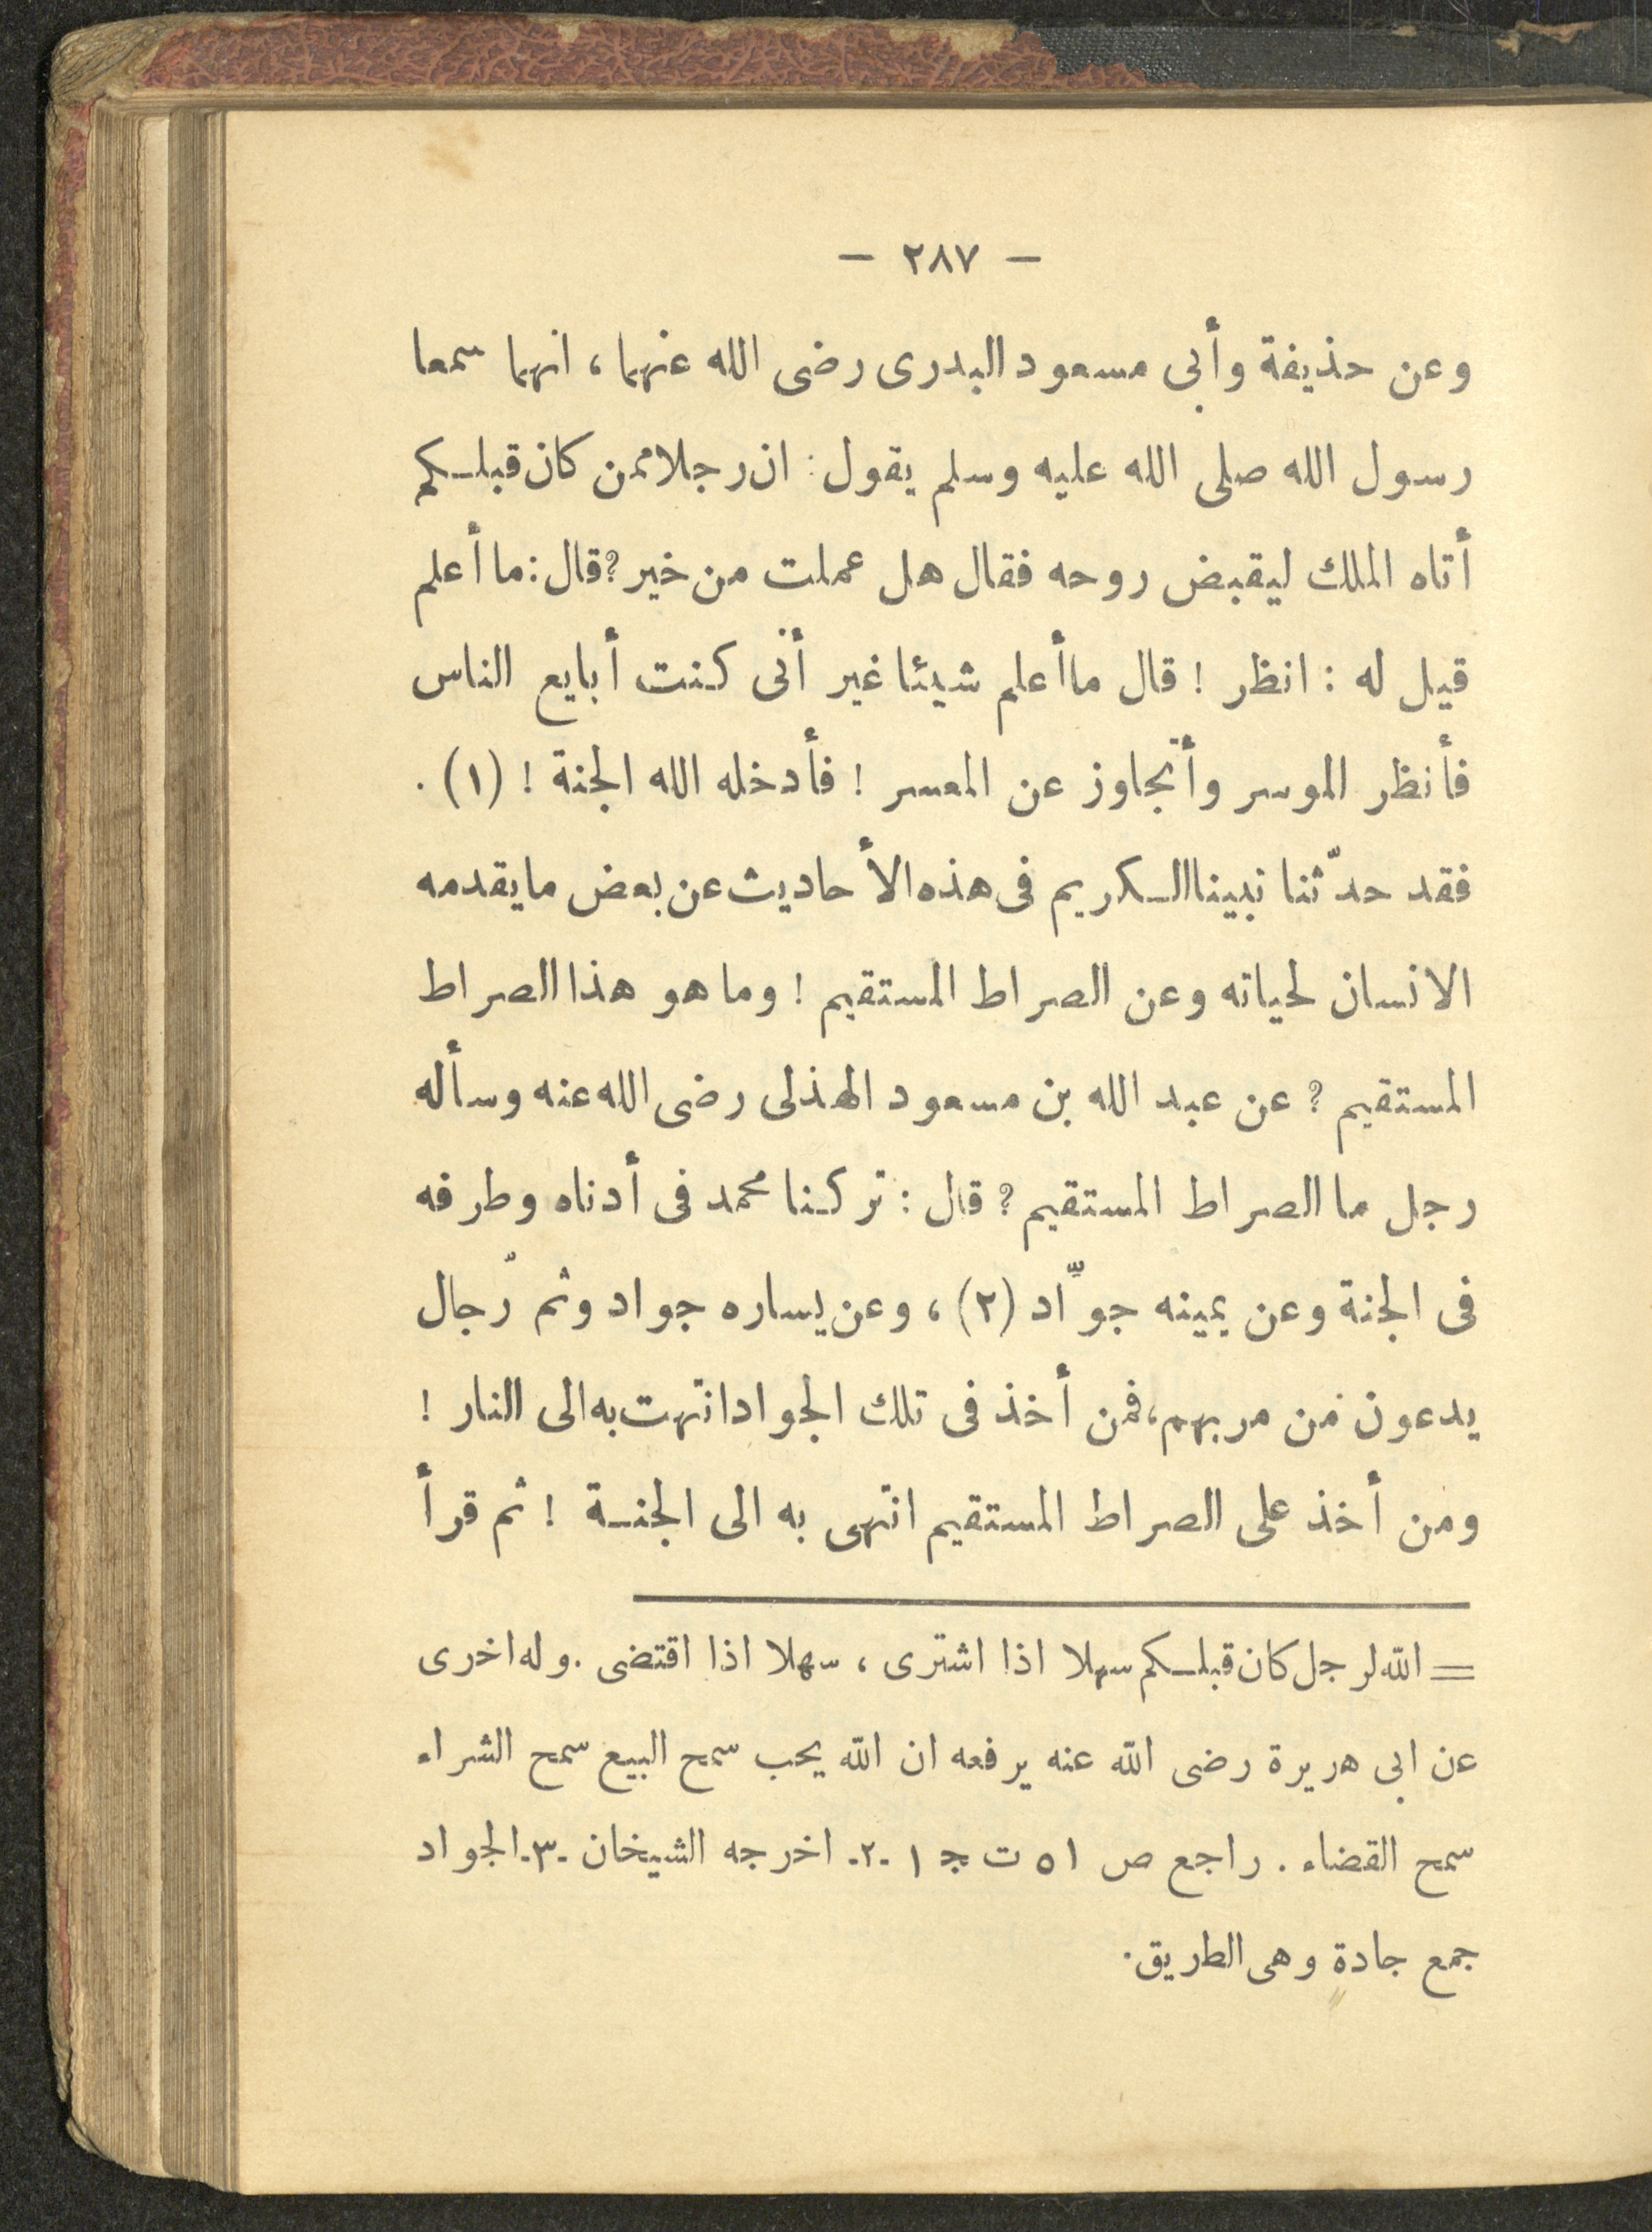 — ٢٨٧ —
وعن حذيفة وأبى مسعود البدرى رضى الله عنهما، انهما سمعا
رسول الله صلى الله عليه وسلم يقول: ان رجلا ممن كان قبلكم
أتاه الملك ليقبض روحه فقال هل عملت من خير؟ قال: ما أعلم
قيل له: انظر! قال ما أعلم شيئا غير أنى كنت أبايع الناس
فأنظر الموسر وأتجاوز عن المعسر! فأدخله الله الجنة! (١).
فقد حدّثنا نبينا الكريم فى هذه الأحاديث عن بعض ما يقدمه
الانسان لحياته وعن الصراط المستقيم! وما هو هذا الصراط
المستقيم؟ عن عبد الله بن مسعود الهذلى رضى الله عنه وسأله
رجل ما الصراط المستقيم؟ قال: تركنا محمد فى أدناه وطرفه
فى الجنة وعن يمينه جوّاد (٢)، وعن يساره جواد وثمّ رجال
يدعون من مر بهم، فمن أخذ فى تلك الجواد انتهت به الى النار!
ومن أخذ على الصراط المستقيم انتهى به الى الجنة! ثم قرأ
= الله لرجل كان قبلكم سهلا اذا اشترى، سهلا اذا اقتضى. وله اخرى
عن ابى هريرة رضى الله عنه يرفعه ان الله يحب سمح البيع سمح الشراء
سمح القضاء. راجع ص ٥١ ت ج ١ -٢- اخرجه الشيخان -٣- الجواد
جمع جادة وهى الطريق.